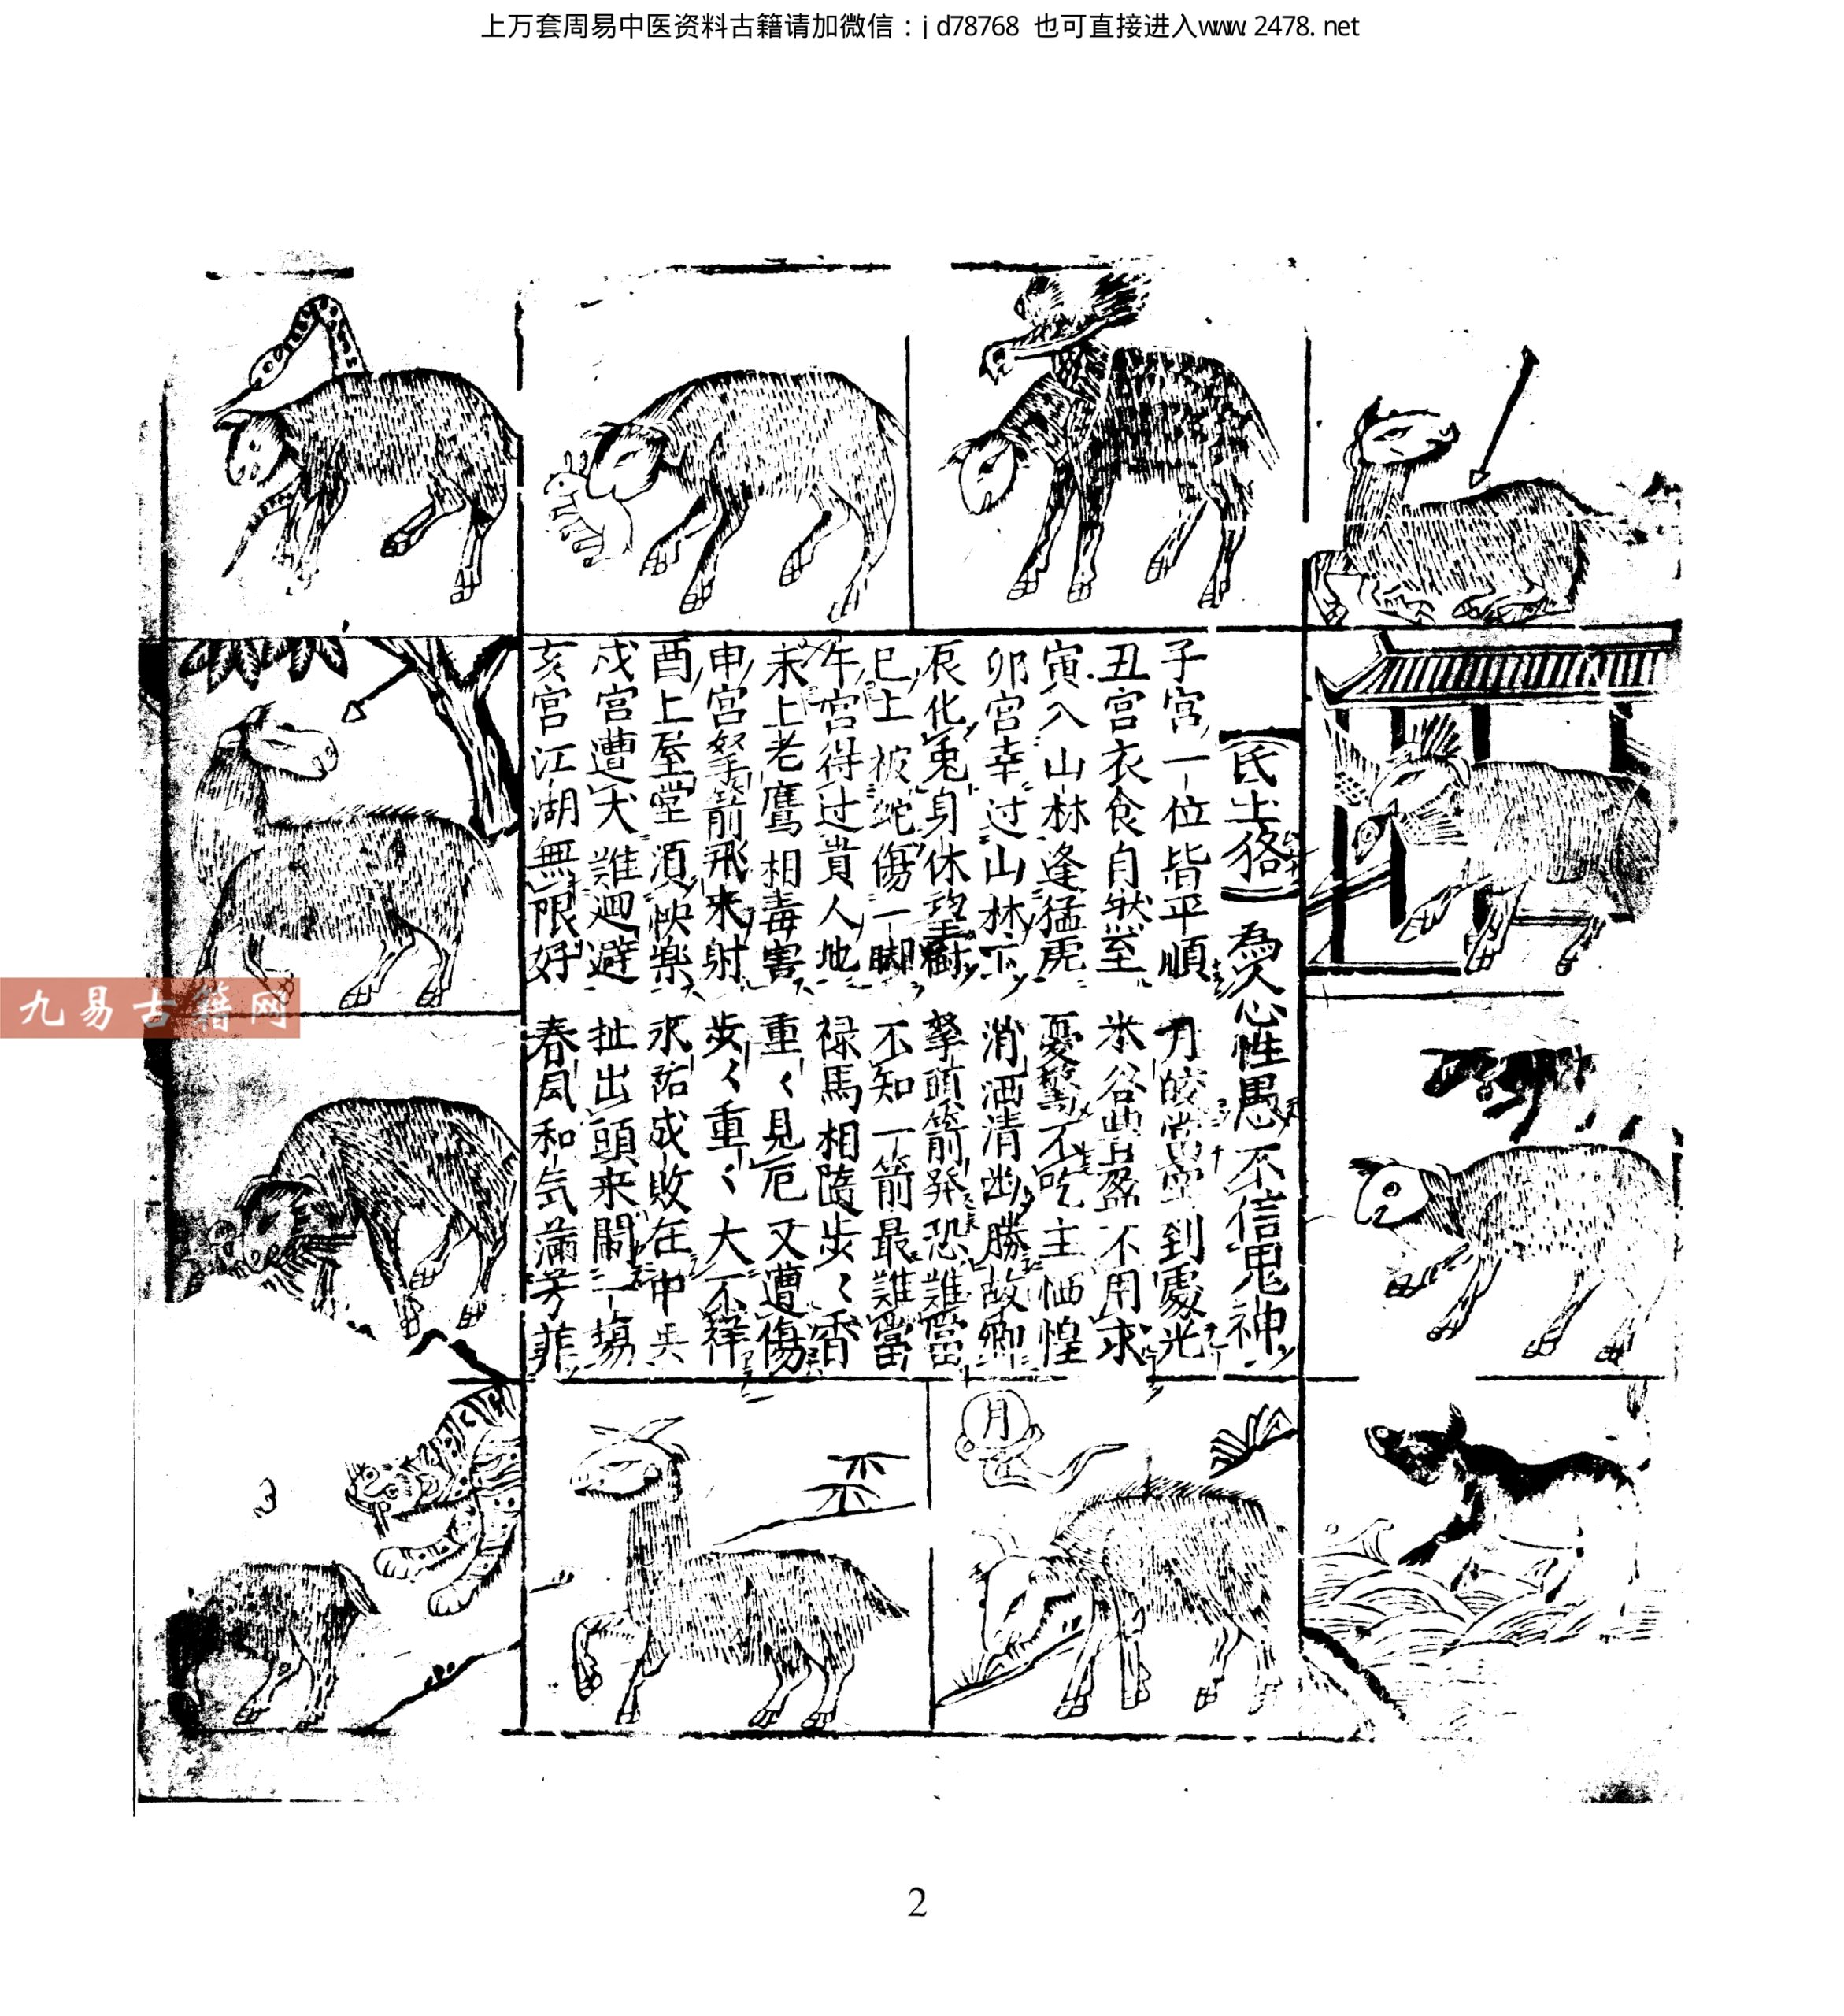 上万套周易中医资料古籍请加微信：jd78768 也可直接进入www.2478.net
氐土狢 為人心性愚不信鬼神
子宮一位皆平順 月皎當空到處光
丑宮衣食自然至 米谷豊盈不用求
寅入山林逢猛虎 憂驚不吃主恓惶
卯宮幸过山林下 消洒清幽勝故鄉
辰化兎身休望樹 擎頭箭發恐難當
巳上被蛇傷一脚 不知一箭最難當
午宮得过貴人地 禄馬相随步〻香
未上老鷹相毒害 重〻見厄又遭傷
申宮弩箭飛來射 步〻重〻大不祥
酉上屋堂須快樂 求佑成敗在中央
戌宮遭犬難廻避 扯出頭来鬧一場
亥宮江湖無限好 春風和気滿芳菲
月
九易古籍网
2